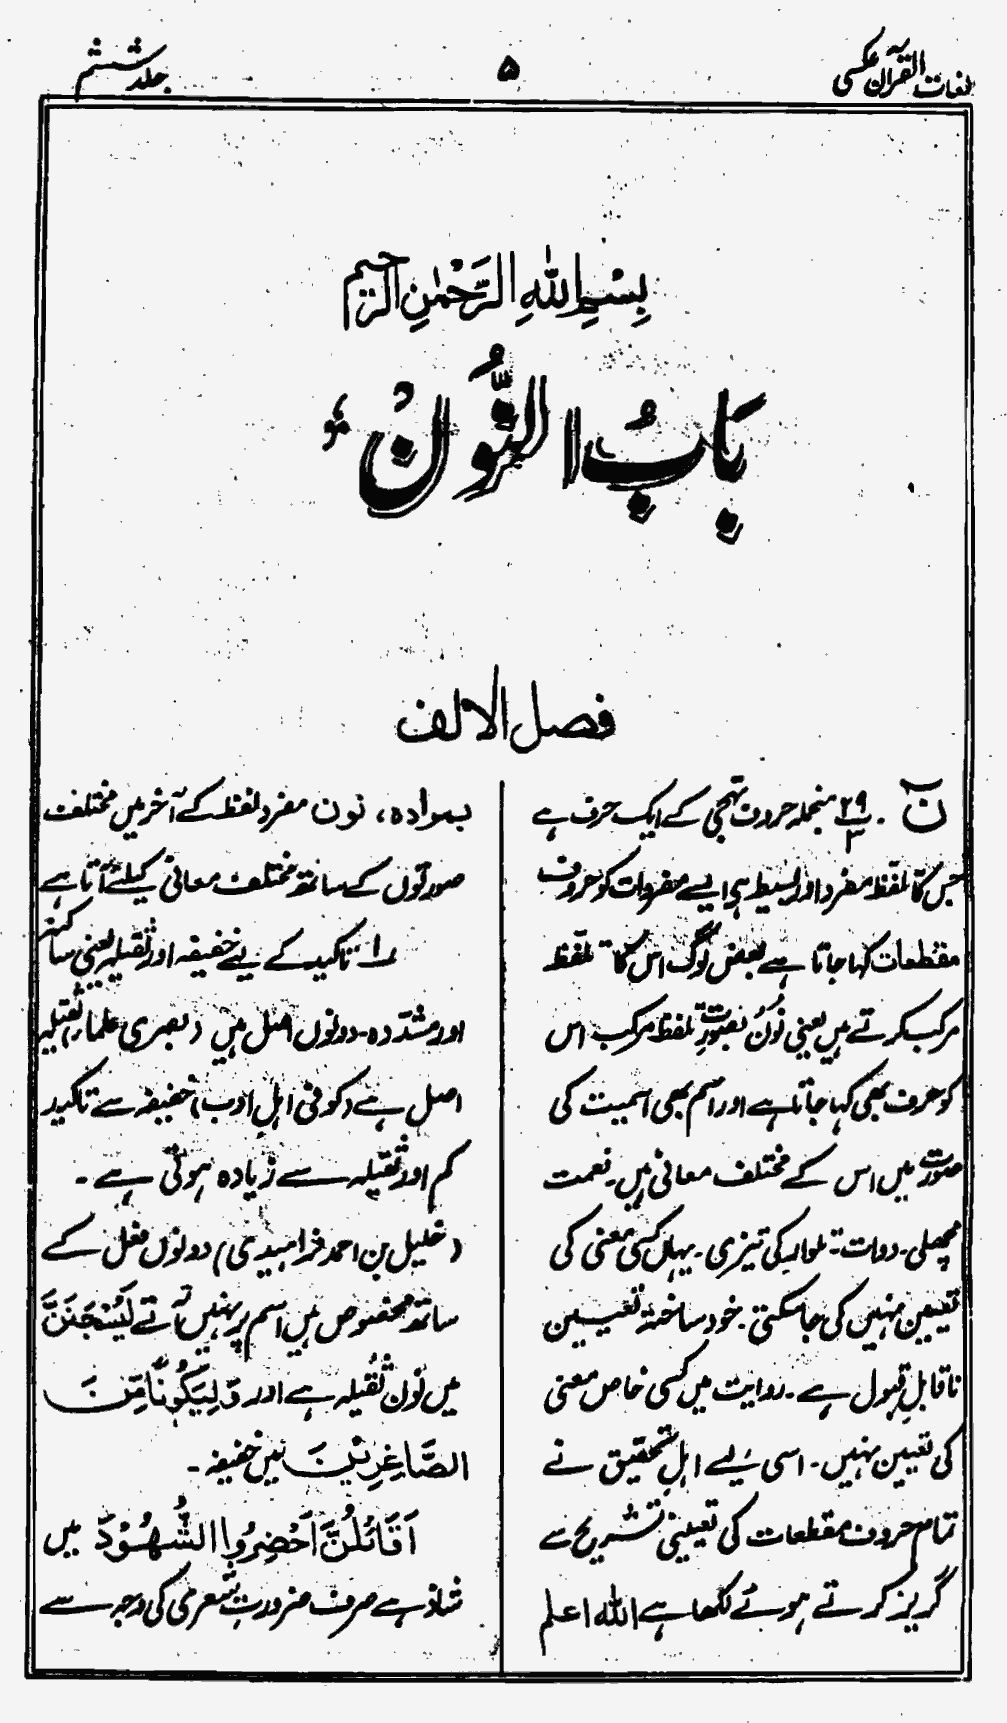 لغات القرآن عکسی
۵
جلد ششم
بِسْمِ اللّٰهِ الرَّحْمٰنِ الرَّحِيمِ
بَابُ النُّونْ
فصل الالف
نٓ ۲۹/۳ ۔ منجملہ حروف تہجی کے ایک حرف ہے
جس کا تلفظ مفرد اور بسیط ہی ایسے مفردات کو حروف
مقطعات کہا جاتا ہے بعض لوگ اس کا تلفظ
مرکب کرتے ہیں یعنی نُونُ بصورتِ تلفظ مرکب اس
کو حرف بھی کہا جاتا ہے اور اسم بھی اسمیت کی
صورت میں اس کے مختلف معانی ہیں۔ نعمت
مچھلی۔ دوات۔ تلوار کی تیزی۔ یہاں کسی معنی کی
تعیین نہیں کی جا سکتی۔ خود ساختہ تعیین
ناقابلِ قبول ہے۔ روایت میں کسی خاص معنی
کی تعیین نہیں۔ اسی لیے اہلِ تحقیق نے
تمام حروف مقطعات کی تعیینی تشریح سے
گریز کرتے ہوئے لکھا ہے اللہ اعلم
بمرادہ، نون مفرد لفظ کے آخر میں مختلف
صورتوں کے ساتھ مختلف معانی کیلئے آتا ہے
۱ تاکید کے لیے خفیفہ اور ثقیلہ یعنی ساکنہ
اور مشدّدہ۔ دونوں اصل ہیں (بصری علماء) ثقیلہ
اصل ہے (کوفی اہلِ ادب) خفیفہ سے تاکید
کم اور ثقیلہ سے زیادہ ہوتی ہے۔
(خلیل بن احمد فراہیدی) دونوں فعل کے
ساتھ مخصوص ہیں اسم پر نہیں آتے لَيُسْجَنَنَّ
میں نون ثقیلہ ہے اور وَلِيَكُونًا مِّنَ
الصَّاغِرِيْنَ میں خفیفہ۔
اَقَائِلُنَّ اَحْضِرُوا الشُّهُوْدَ میں
شاذ ہے صرف ضرورتِ شعری کی وجہ سے